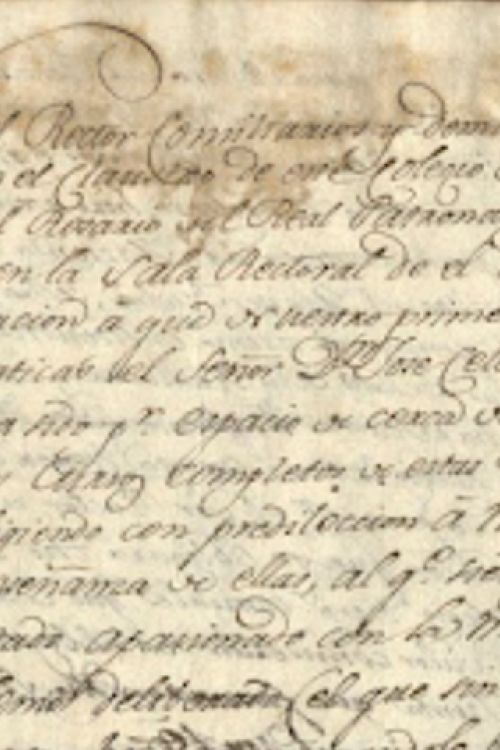 l Rector Conciliarios y demas
n el Claustro de este Colegio
l Rosario del Real Patrona
en la Sala Rectoral de el
acion à que de nuestro prime
aticas del Señor Dn. Jose Cele
a sido pr. espacio de cerca de
y Curzos completos de estas
igiendo con predileccion à
nseñanza de ellas, al qe.
rado apasionado con la
emos deliberado el que